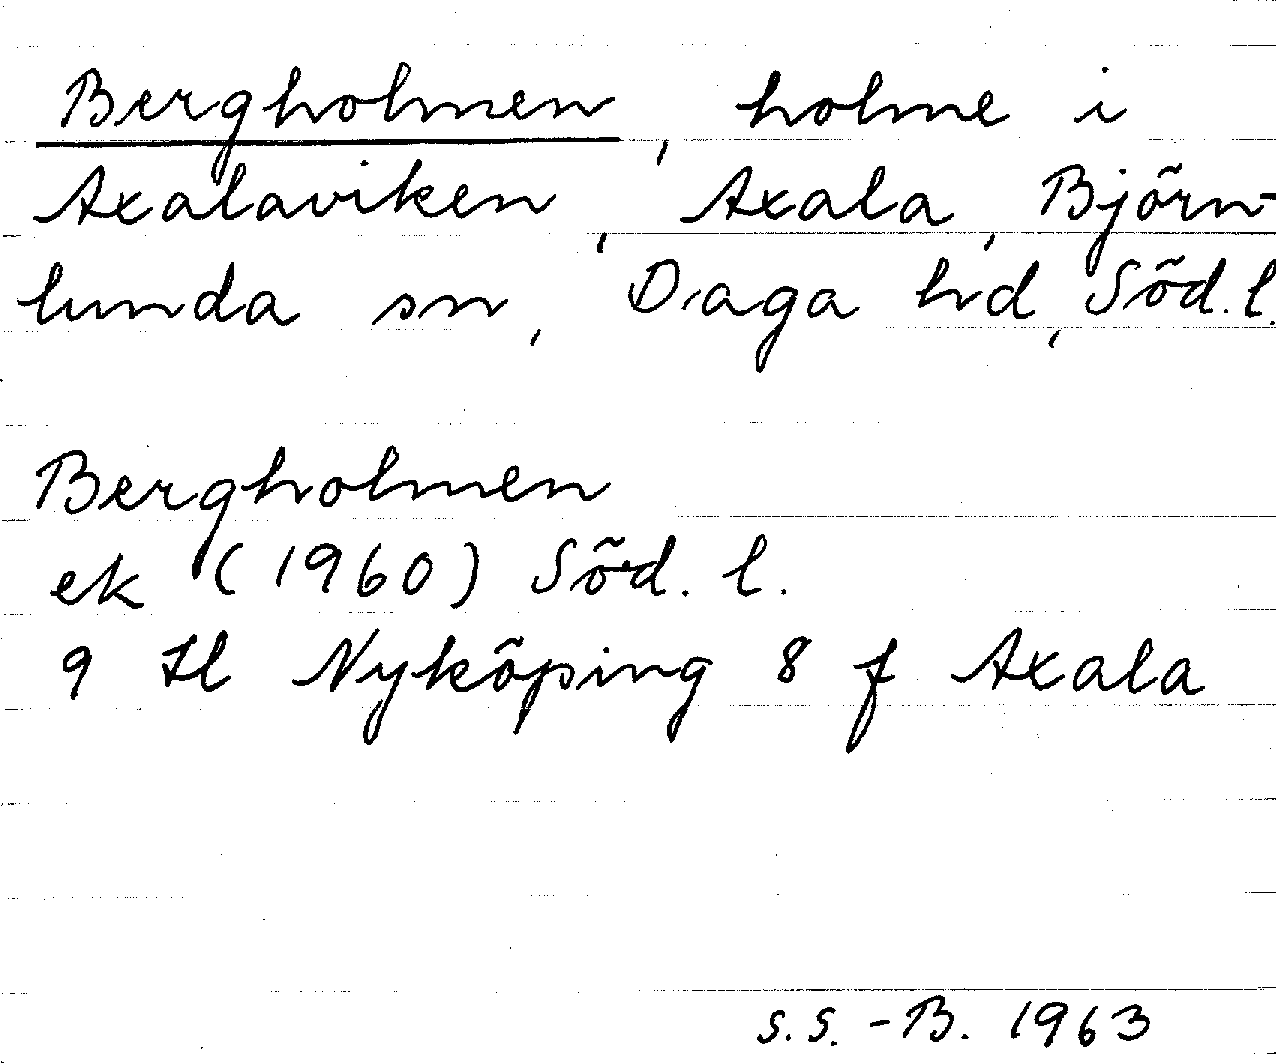 Bergholmen, holme i
Axalaviken, Axala, Björn-
lunda sn, Daga hd, Söd. l.
Bergholmen
ek (1960) Söd. l.
9 H Nyköping 8 f Axala
S.S.-B. 1963